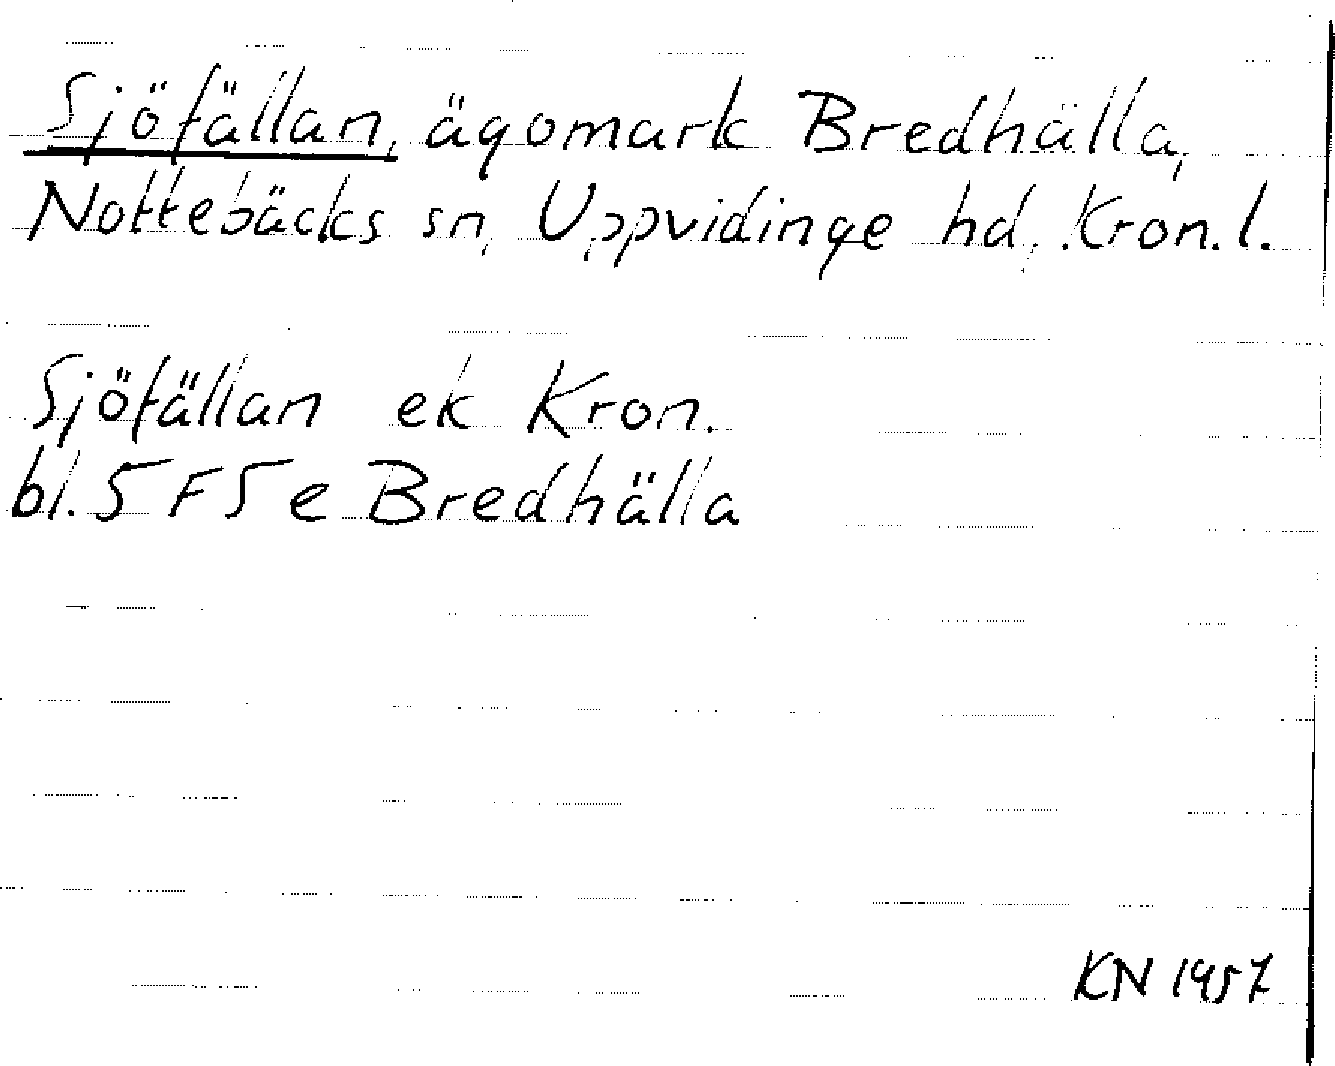 Sjöfällan, ägomark Bredhälla,
Nottebäcks sn, Uppvidinge hd, Kron. l.
Sjöfällan ek Kron.
bl. 5 F 5 e Bredhälla
KN 1957